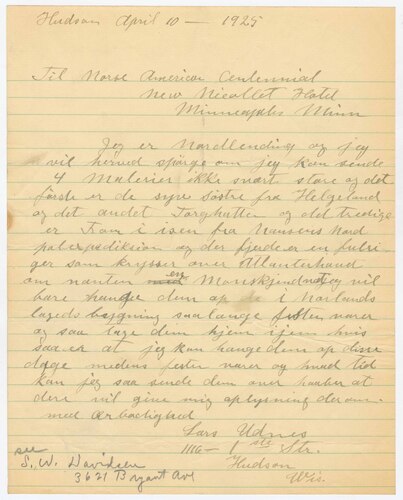 Hudson April 10 — 1925
Til Norse American Centennial
New Nicollet Hotel
Minneapolis Minn
Jeg er Nordlending og jeg
vil herved spörge om jeg kan sende
4 Malerier ikke svært store og det
förste er de syve söstre fra Helgeland
og det andet Torghatten og det tredige
er Fram i isen fra Nansens Nord
pol og der fjerde er en
som krysser over Atlanterhavet
om natten en Maaskjinsnat og vil
bare hange dem op i Norlands
lagets bygning saalange festen varer
og saa tage dem hjem igjem hvis
saa er at jeg kan hange dem op disse
dage medens festen varer og hvad tid
kan jeg saa sende dem over haaber at
dere vil give mig oplysning derom.
med Ærbødighed
Lars Udnes
1116 – 1 st Str.
Hudson
Wis.
see
S. W. Davidsen
3621 Bryant Ave